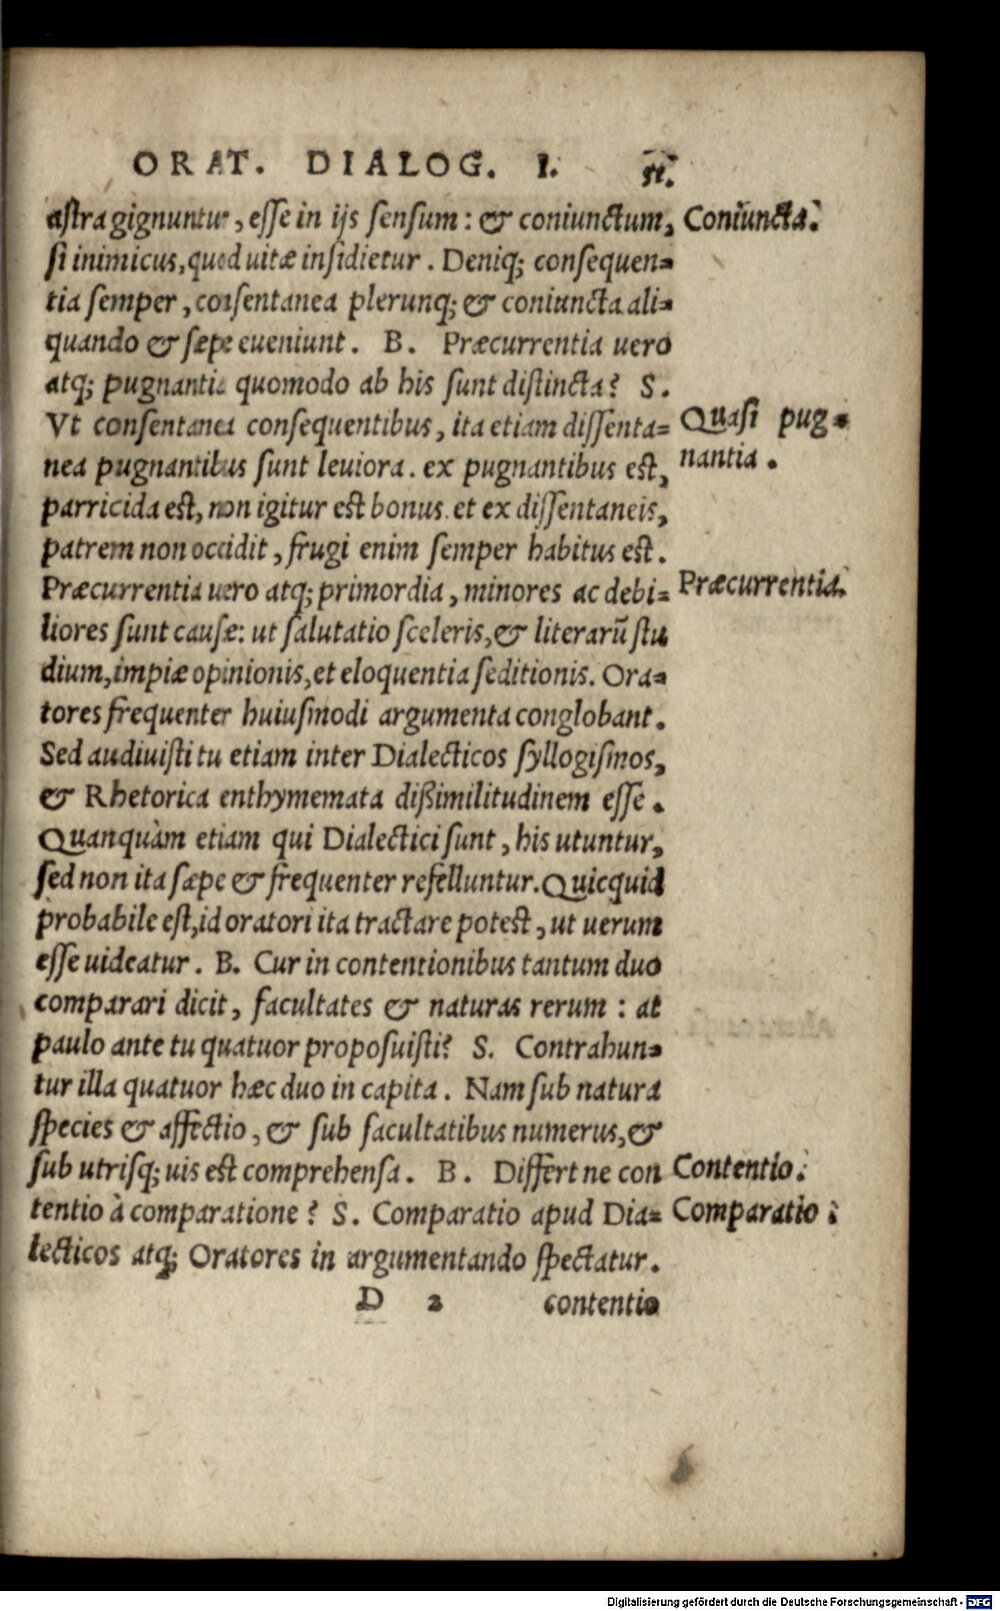 ORAT. DIALOG. I.
astra gignuntur, esse in ijs sensum: & coniunctum, Coniuncta.
si inimicus, quod uitæ insidietur. Deniq; consequen=
tia semper, consentanea plerunq; & coniuncta ali=
quando & sæpe eueniunt. B. Præcurrentia uero
atq; pugnantia quomodo ab his sunt distincta? S.
Vt consentanea consequentibus, ita etiam dissenta= Quasi pug-
nea pugnantibus sunt leuiora. ex pugnantibus est, nantia.
parricida est, non igitur est bonus. et ex dissentaneis,
patrem non occidit, frugi enim semper habitus est.
Præcurrentia uero atq; primordia, minores ac debi= Præcurrentia.
liores sunt causæ: ut salutatio sceleris, & literarũ stu
dium, impiæ opinionis, et eloquentia seditionis. Ora=
tores frequenter huiusmodi argumenta conglobant.
Sed audiuisti tu etiam inter Dialecticos syllogismos,
& Rhetorica enthymemata dißimilitudinem esse.
Quanquàm etiam qui Dialectici sunt, his utuntur,
sed non ita sæpe & frequenter refelluntur. Quicquid
probabile est, id oratori ita tractare potest, ut uerum
esse uideatur. B. Cur in contentionibus tantum duo
comparari dicit, facultates & naturas rerum: at
paulo ante tu quatuor proposuisti? S. Contrahun=
tur illa quatuor hæc duo in capita. Nam sub natura
species & affectio, & sub facultatibus numerus, &
sub utrisq; uis est comprehensa. B. Differt ne con Contentio.
tentio à comparatione? S. Comparatio apud Dia= Comparatio.
lecticos atq; Oratores in argumentando spectatur.
D 2 contentio
Digitalisierung gefördert durch die Deutsche Forschungsgemeinschaft - DFG